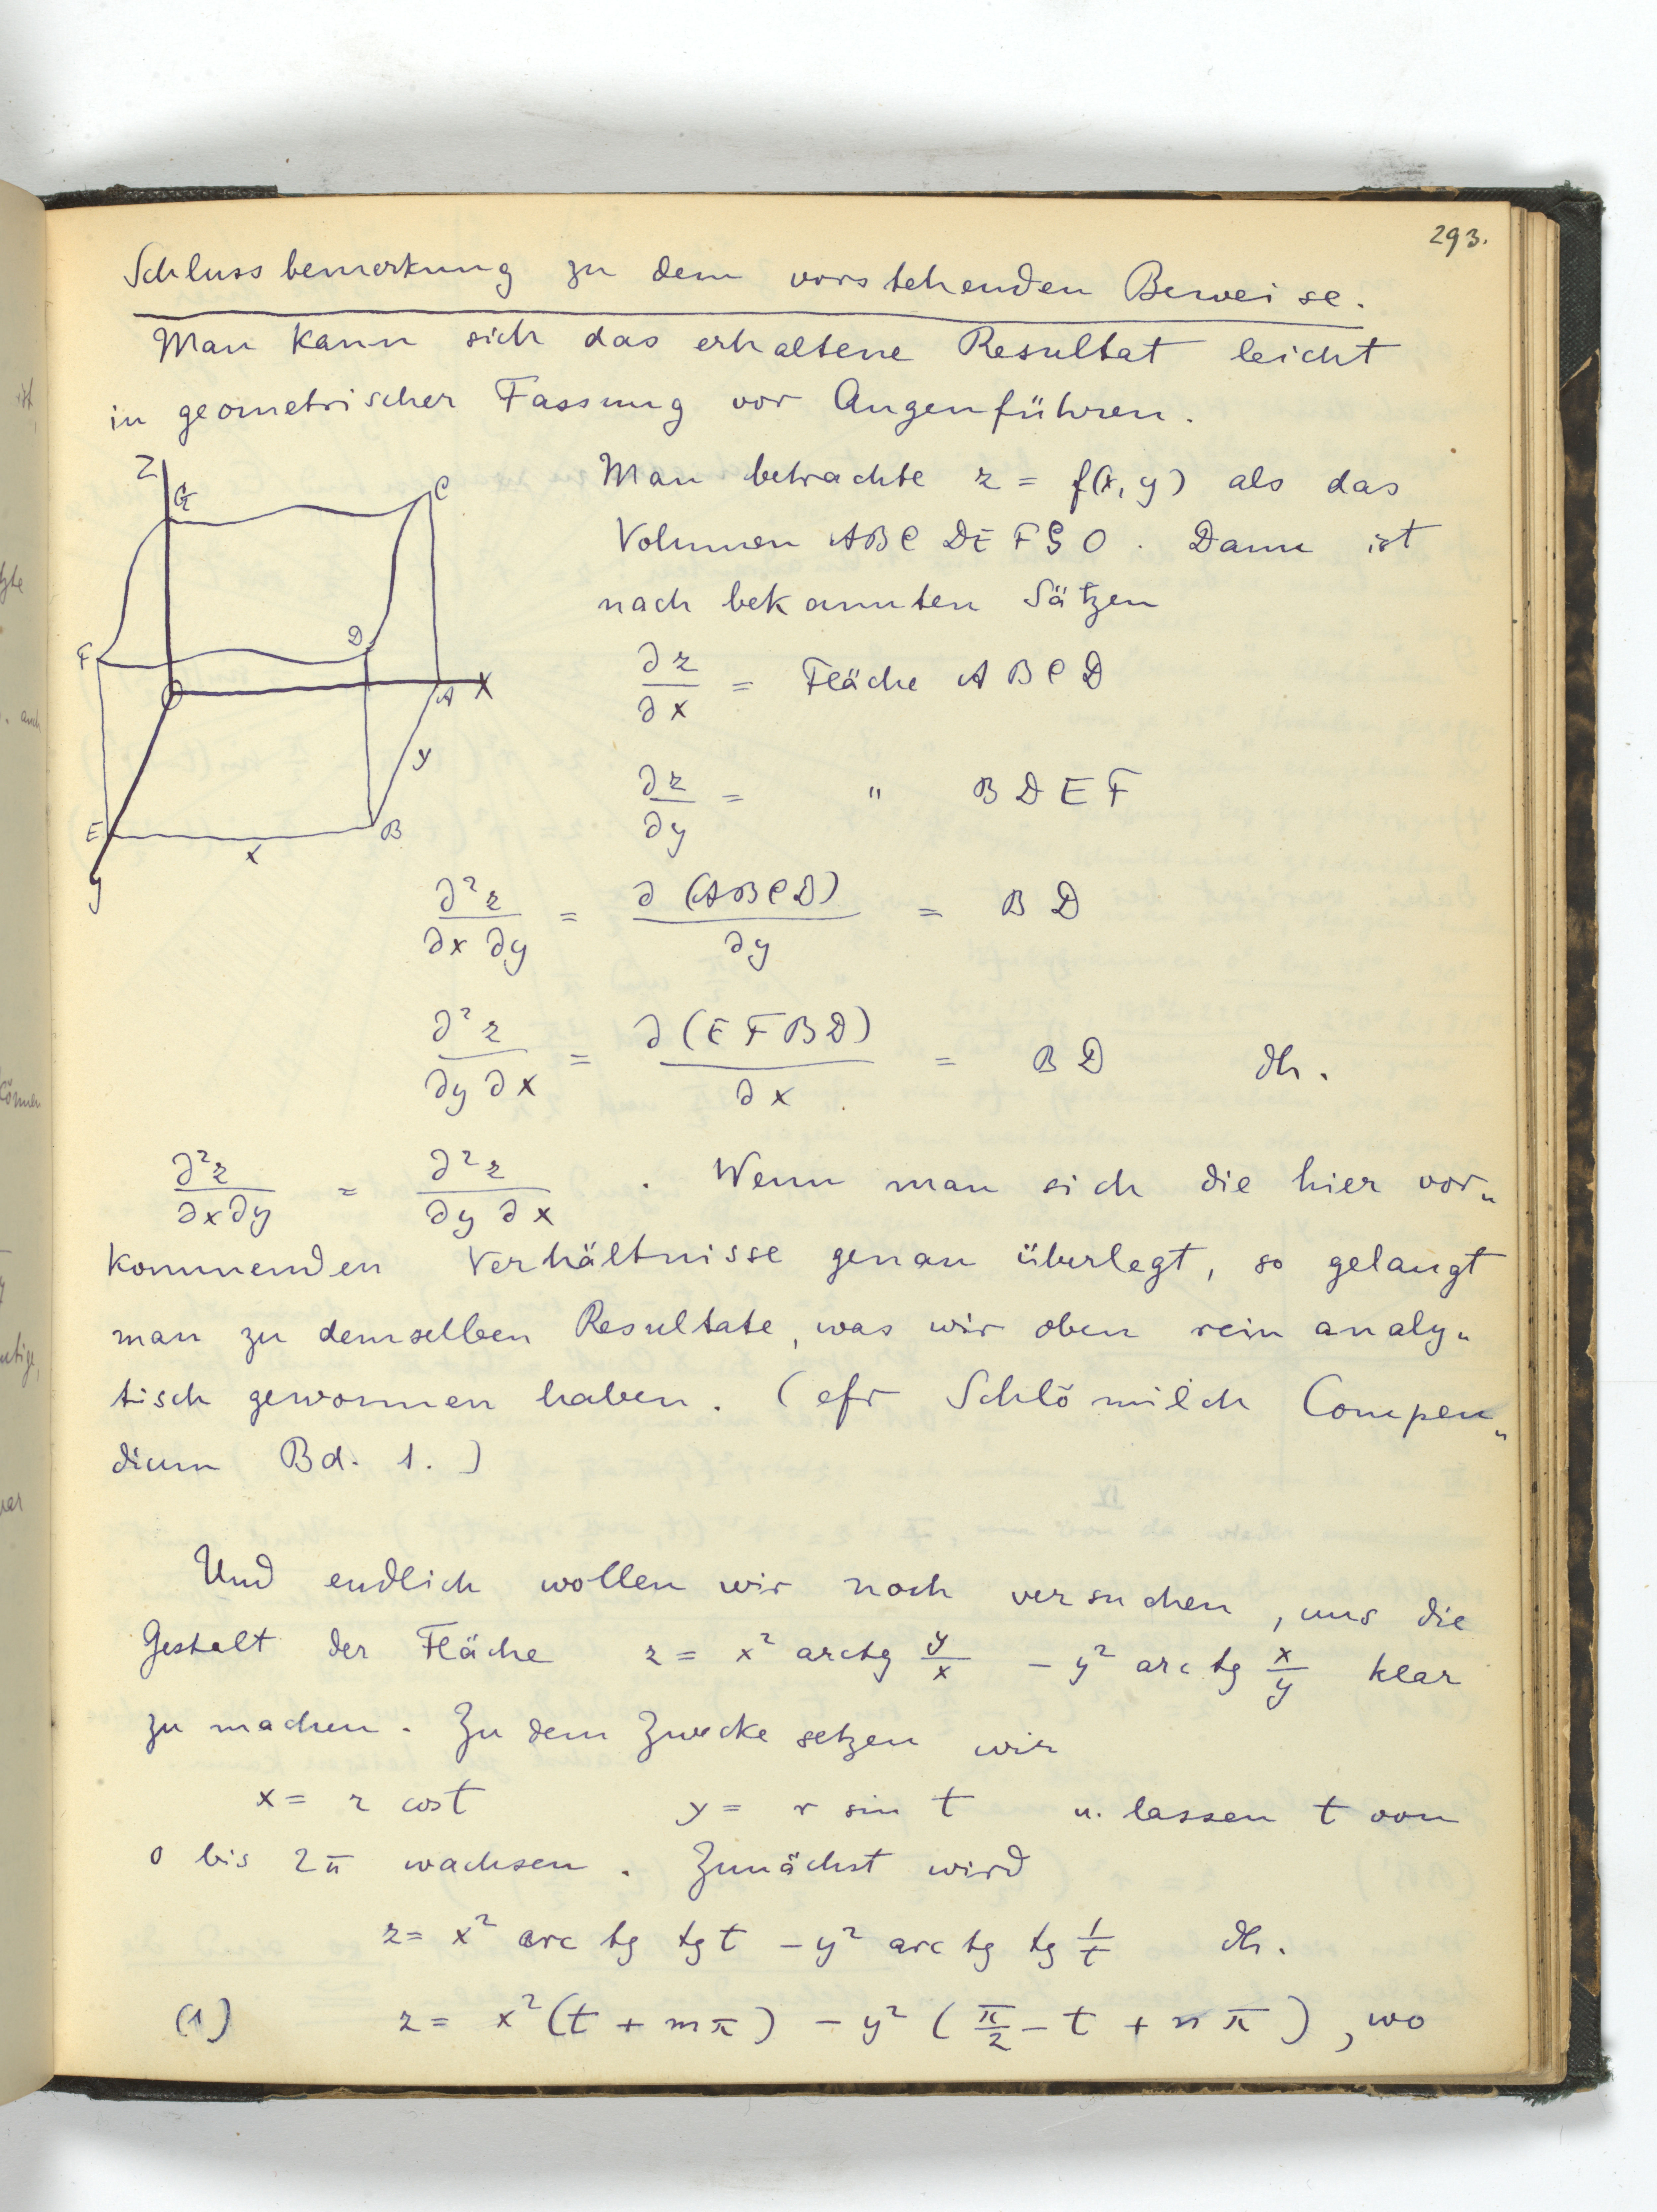 293.
Schlussbemerkung zu dem vorstehenden Beweise.
Man kann sich das erhaltene Resultat leicht
in geometrischer Fassung vor Augen führen.
Z
G
C
F
D
O
A
X
y
E
B
x
y
Man betrachte z = f(x, y) als das
Volumen ABCDEFGO. Dann ist
nach bekannten Sätzen
∂z/∂x = Fläche ABCD
∂z/∂y = " BDEF
∂²z/∂x ∂y = ∂(ABCD)/∂y = BD
∂²z/∂y ∂x = ∂(EFBD)/∂x = BD dh.
∂²z/∂x∂y = ∂²z/∂y ∂x . Wenn man sich die hier vor„
kommenden Verhältnisse genau überlegt, so gelangt
man zu demselben Resultate, was wir oben rein analy„
tisch gewonnen haben. (cfr Schlömilch Compen„
dium Bd. 1.)
Und endlich wollen wir noch versuchen, uns die
Gestalt der Fläche z = x² arctg y/x - y² arc tg x/y klar
zu machen. Zu dem Zwecke setzen wir
x = r cos t y = r sin t u. lassen t von
0 bis 2π wachsen. Zunächst wird
z = x² arc tg tg t - y² arc tg tg 1/t dh.
(1) z = x² (t + mπ) - y² (π/2 - t + nπ), wo